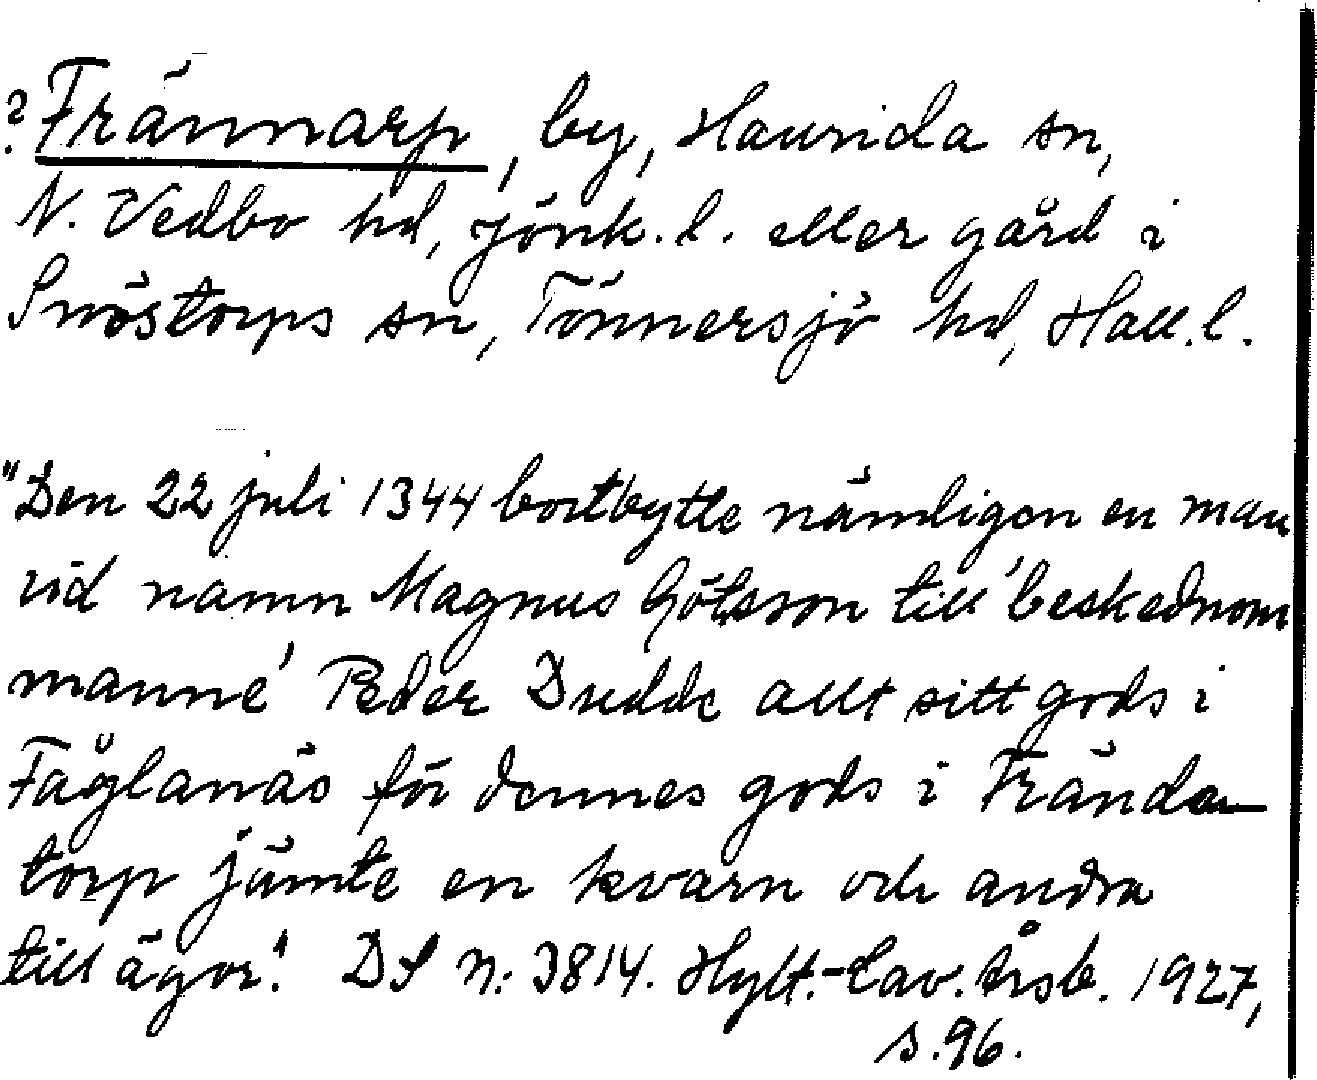 ? Frännarp, by, Haurida sn,
N. Vedbo hd, Jönk. l. eller gård i
Snöstorps sn, Tönnersjö hd, Hall. l.
"Den 22 juli 1344 bortbytte nämligen en man
vid namn Magnus Götsson till 'beskednom
manne' Peder Dudde allt sitt gods i
Fåglanäs för dennes gods i Frända-
torp jämte en kvarn och andra
tillägor." DS N: 3814. Hylt.-Cav. Årsb. 1927,
s. 96.